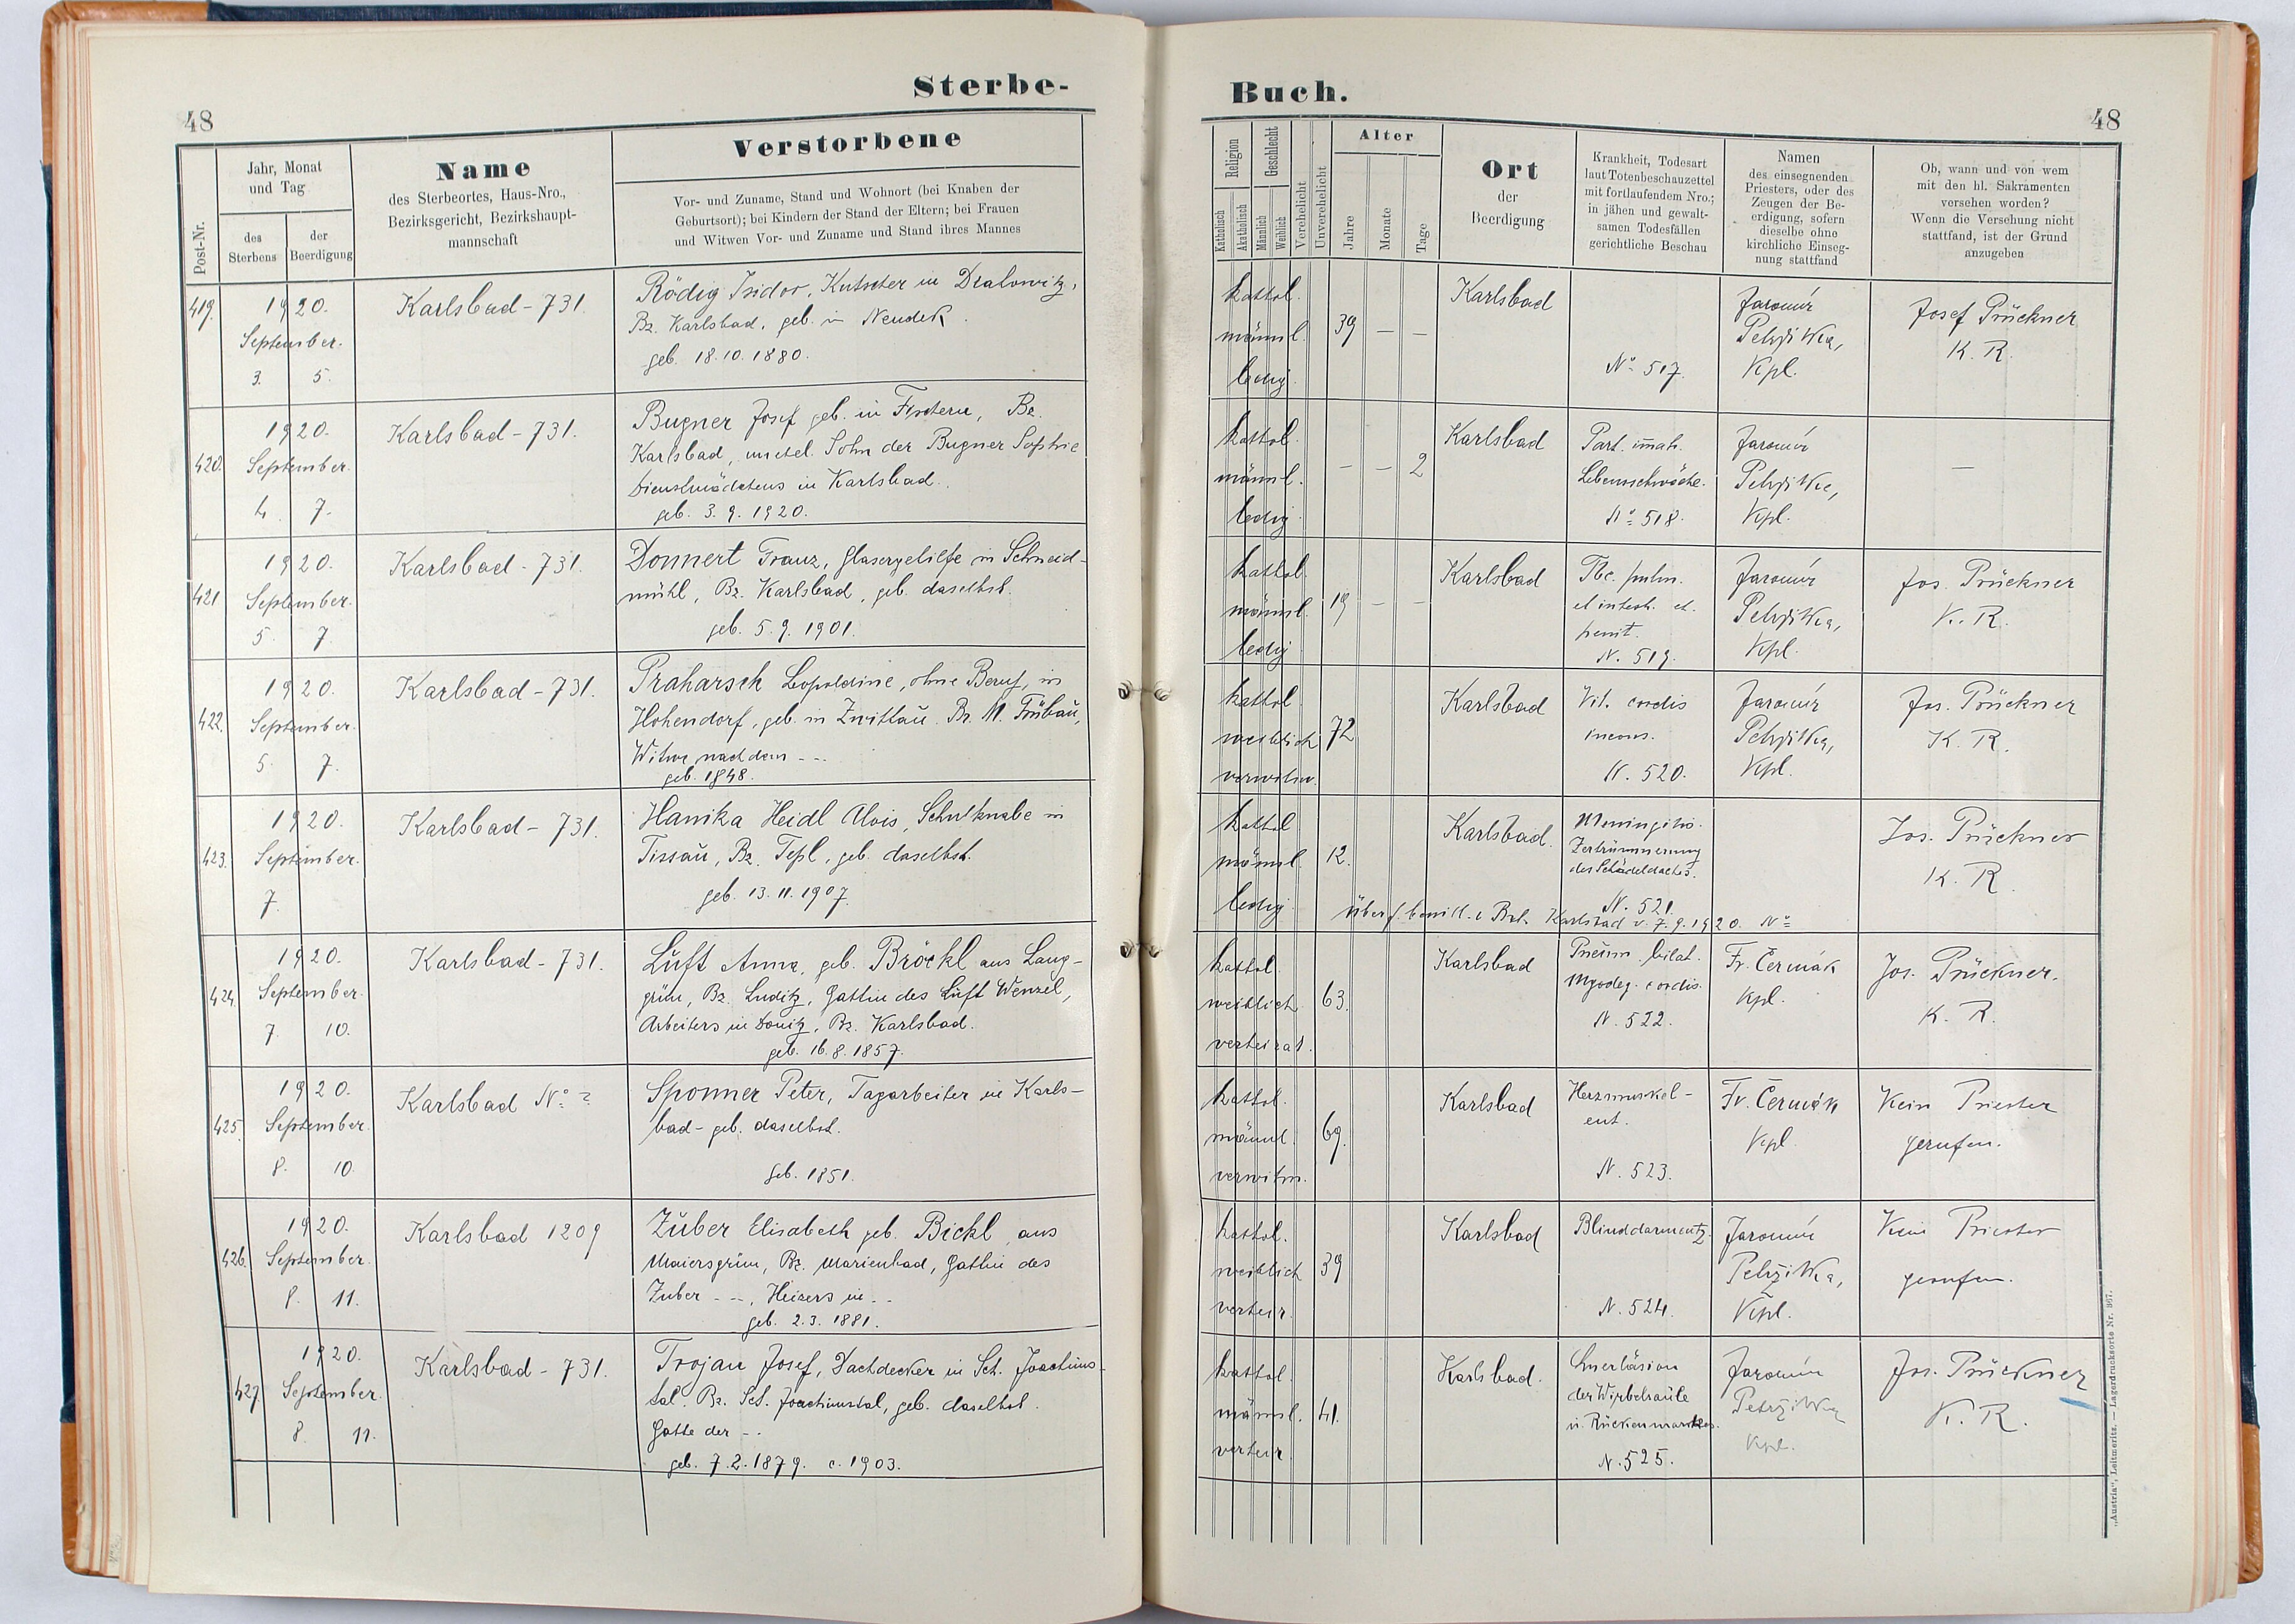 Sterbe-
48
Post-Nr.
Jahr, Monat
und Tag
des
Sterbens
der
Beerdigung
Name
des Sterbeortes, Haus-Nro.,
Bezirksgericht, Bezirkshaupt-
mannschaft
Verstorbene
Vor- und Zuname, Stand und Wohnort (bei Knaben der
Geburtsort); bei Kindern der Stand der Eltern; bei Frauen
und Witwen Vor- und Zuname und Stand ihres Mannes
419.
1920.
September.
3. 5.
Karlsbad - 731.
Rödig Isidor, Kutscher in Dralowitz,
Bz. Karlsbad, geb. in Neudek.
geb. 18.10.1880.
420.
1920.
September.
4. 7.
Karlsbad - 731.
Bugner Josef geb. in Fischern, Bz.
Karlsbad, unehel. Sohn der Bugner Sophie
Dienstmädchens in Karlsbad.
geb. 3. 9. 1920.
421
1920.
September.
5. 7.
Karlsbad - 731.
Donnert Franz, Glasergehilfe in Schneid-
mühl, Bz. Karlsbad, geb. daselbst.
geb. 5. 9. 1901.
422.
1920.
September.
5. 7.
Karlsbad - 731.
Praharsch Leopoldine, ohne Beruf, in
Hohendorf, geb. in Zwittau. Bz. M. Trübau,
Witwe nach dem - - -
geb. 1848.
423.
1920.
September.
7.
Karlsbad - 731.
Hanika Heidl Alois, Schulknabe in
Tissau, Bz. Tepl, geb. daselbst.
geb. 13. 11. 1907.
424.
1920.
September.
7. 10.
Karlsbad - 731.
Luft Anna, geb. Bröckl aus Lang-
grün, Bz. Luditz, Gattin des Luft Wenzel,
Arbeiters in Donitz, Bz. Karlsbad.
geb. 16. 8. 1857.
425.
1920.
September.
8. 10.
Karlsbad No ?
Sponner Peter, Tagarbeiter in Karls-
bad - geb. daselbst.
geb. 1851.
426.
1920.
September.
8. 11.
Karlsbad 1209
Zuber Elisabeth geb. Bickl, aus
Maiersgrün, Bz. Marienbad, Gattin des
Zuber - -, Heizers in - -
geb. 2. 3. 1881.
427.
1920.
September.
8. 11.
Karlsbad - 731.
Trojan Josef, Dachdecker in Sct. Joachims-
tal. Bz. Sct. Joachimstal, geb. daselbst.
Gatte der - -
geb. 7. 2. 1879. c. 1903.
Buch.
48
Religion
Katholisch
Akatholisch
Geschlecht
Männlich
Weiblich
Verehelicht
Unverehelicht
Alter
Jahre
Monate
Tage
Ort
der
Beerdigung
Krankheit, Todesart
laut Totenbeschauzettel
mit fortlaufendem Nro.;
in jähen und gewalt-
samen Todesfällen
gerichtliche Beschau
Namen
des einsegnenden
Priesters, oder des
Zeugen der Be-
erdigung, sofern
dieselbe ohne
kirchliche Einseg-
nung stattfand
Ob, wann und von wem
mit den hl. Sakramenten
versehen worden?
Wenn die Versehung nicht
stattfand, ist der Grund
anzugeben
kathol.
männl.
ledig.
39 — —
Karlsbad
No 517.
Jaromír
Petržilka,
Kpl.
Josef Prückner
K. R.
kathol.
männl.
ledig.
— — 2
Karlsbad
Part. immat.
Lebensschwäche.
No 518.
Jaromír
Petržilka,
Kpl.
—
kathol.
männl.
ledig
19 — —
Karlsbad
Tbc. pulm.
et intest. et.
perit.
N. 519.
Jaromír
Petržilka,
Kpl.
Jos. Prückner
K. R.
kathol
weiblich
verwitw.
72
Karlsbad
Vit. cordis
incons.
N. 520.
Jaromír
Petržilka,
Kpl.
Jos. Prückner
K. R.
kathol
männl.
ledig.
12.
Karlsbad.
Meningitis.
Zertrümmerung
des Schädeldaches.
N. 521.
Jos. Prückner
K. R.
Karlsbad v. 7. 9. 1920. No
kathol.
weiblich
verheirat.
63.
Karlsbad
Pneum. bilat.
Myodeg. cordis.
N. 522.
Fr. Čermák
Kpl.
Jos. Prückner.
K. R.
kathol.
männl.
verwitw.
69.
Karlsbad
Herzmuskel-
ent.
N. 523.
Fr. Čermák
Kpl
Kein Priester
gerufen.
kathol.
weiblich
verheir.
39
Karlsbad
Blinddarmentz.
N. 524.
Jaromír
Petržilka,
Kpl.
Kein Priester
gerufen.
kathol.
männl.
verheir.
41.
Karlsbad.
der Wirbelsäule
u. Rückenmarkes.
N. 525.
Jaromír
Petržilka
Kpl.
Jos. Prückner
K. R.
„Austria“, Leitmeritz. — Lagerdrucksorte Nr. 367.